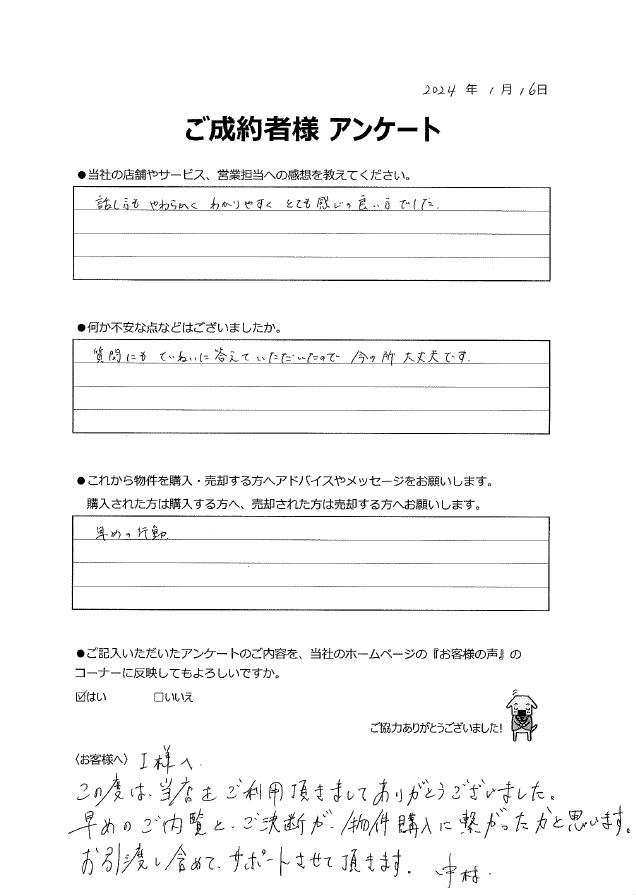 2024 年 1 月 16日
ご成約者様 アンケート
●当社の店舗やサービス、営業担当への感想を教えてください。
話し方も やわらかく わかりやすく とても感じの良い方でした。
●何か不安な点などはございましたか。
質問にも ていねいに 答えて いただいたので 今の所 大丈夫です。
●これから物件を購入・売却する方へアドバイスやメッセージをお願いします。
購入された方は購入する方へ、売却された方は売却する方へお願いします。
早めの行動
●ご記入いただいたアンケートのご内容を、当社のホームページの『お客様の声』の
コーナーに反映してもよろしいですか。
☑はい □いいえ
ご協力ありがとうございました!
〈お客様へ〉 I様へ
この度は、当店をご利用頂きましてありがとうございました。
早めのご内覧と、ご決断が、物件購入に繋がったかと思います。
お引渡し含めて、サポートさせて頂きます。 中村